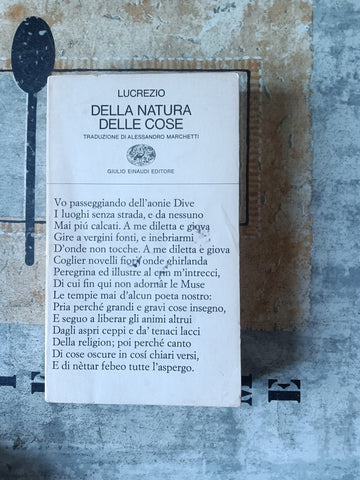 LUCREZIO
DELLA NATURA
DELLE COSE
TRADUZIONE DI ALESSANDRO MARCHETTI
GIULIO EINAUDI EDITORE
Vo passeggiando dell'aonie Dive
I luoghi senza strada, e da nessuno
Mai piú calcati. A me diletta e giova
Gire a vergini fonti, e inebriarmi
D'onde non tocche. A me diletta e giova
Coglier novelli fiori onde ghirlanda
Peregrina ed illustre al crin m'intrecci,
Di cui fin qui non adornâr le Muse
Le tempie mai d'alcun poeta nostro:
Pria perché grandi e gravi cose insegno,
E seguo a liberar gli animi altrui
Dagli aspri ceppi e da' tenaci lacci
Della religion; poi perché canto
Di cose oscure in cosí chiari versi,
E di nèttar febeo tutte l'aspergo.